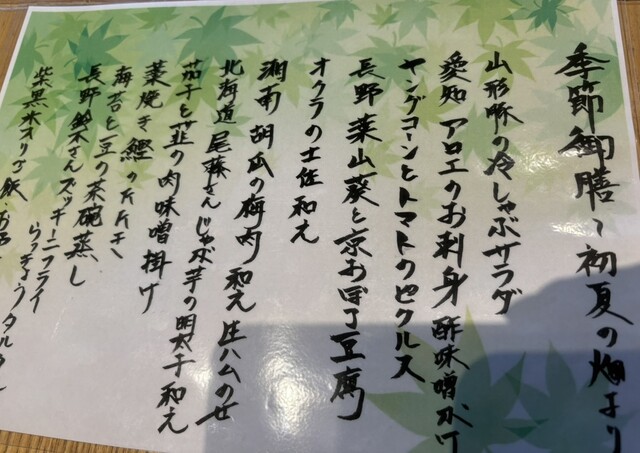 季節御膳～初夏の畑より
山形豚の冷しゃぶサラダ
愛知 アロエのお刺身 酢味噌がけ
ヤングコーンとトマトのピクルス
長野 葉山葵と京おぼろ豆腐
オクラの土佐和え
湘南 胡瓜の梅肉和え 生ハムのせ
北海道 尾藤さんじゃが芋の明太子和え
茄子と韮の肉味噌掛け
藁焼き鰹のたたき
海苔と豆の茶碗蒸し
長野 鈴木さんズッキーニフライ
らっきょうタルタル
紫黒米オリゴ飯・お